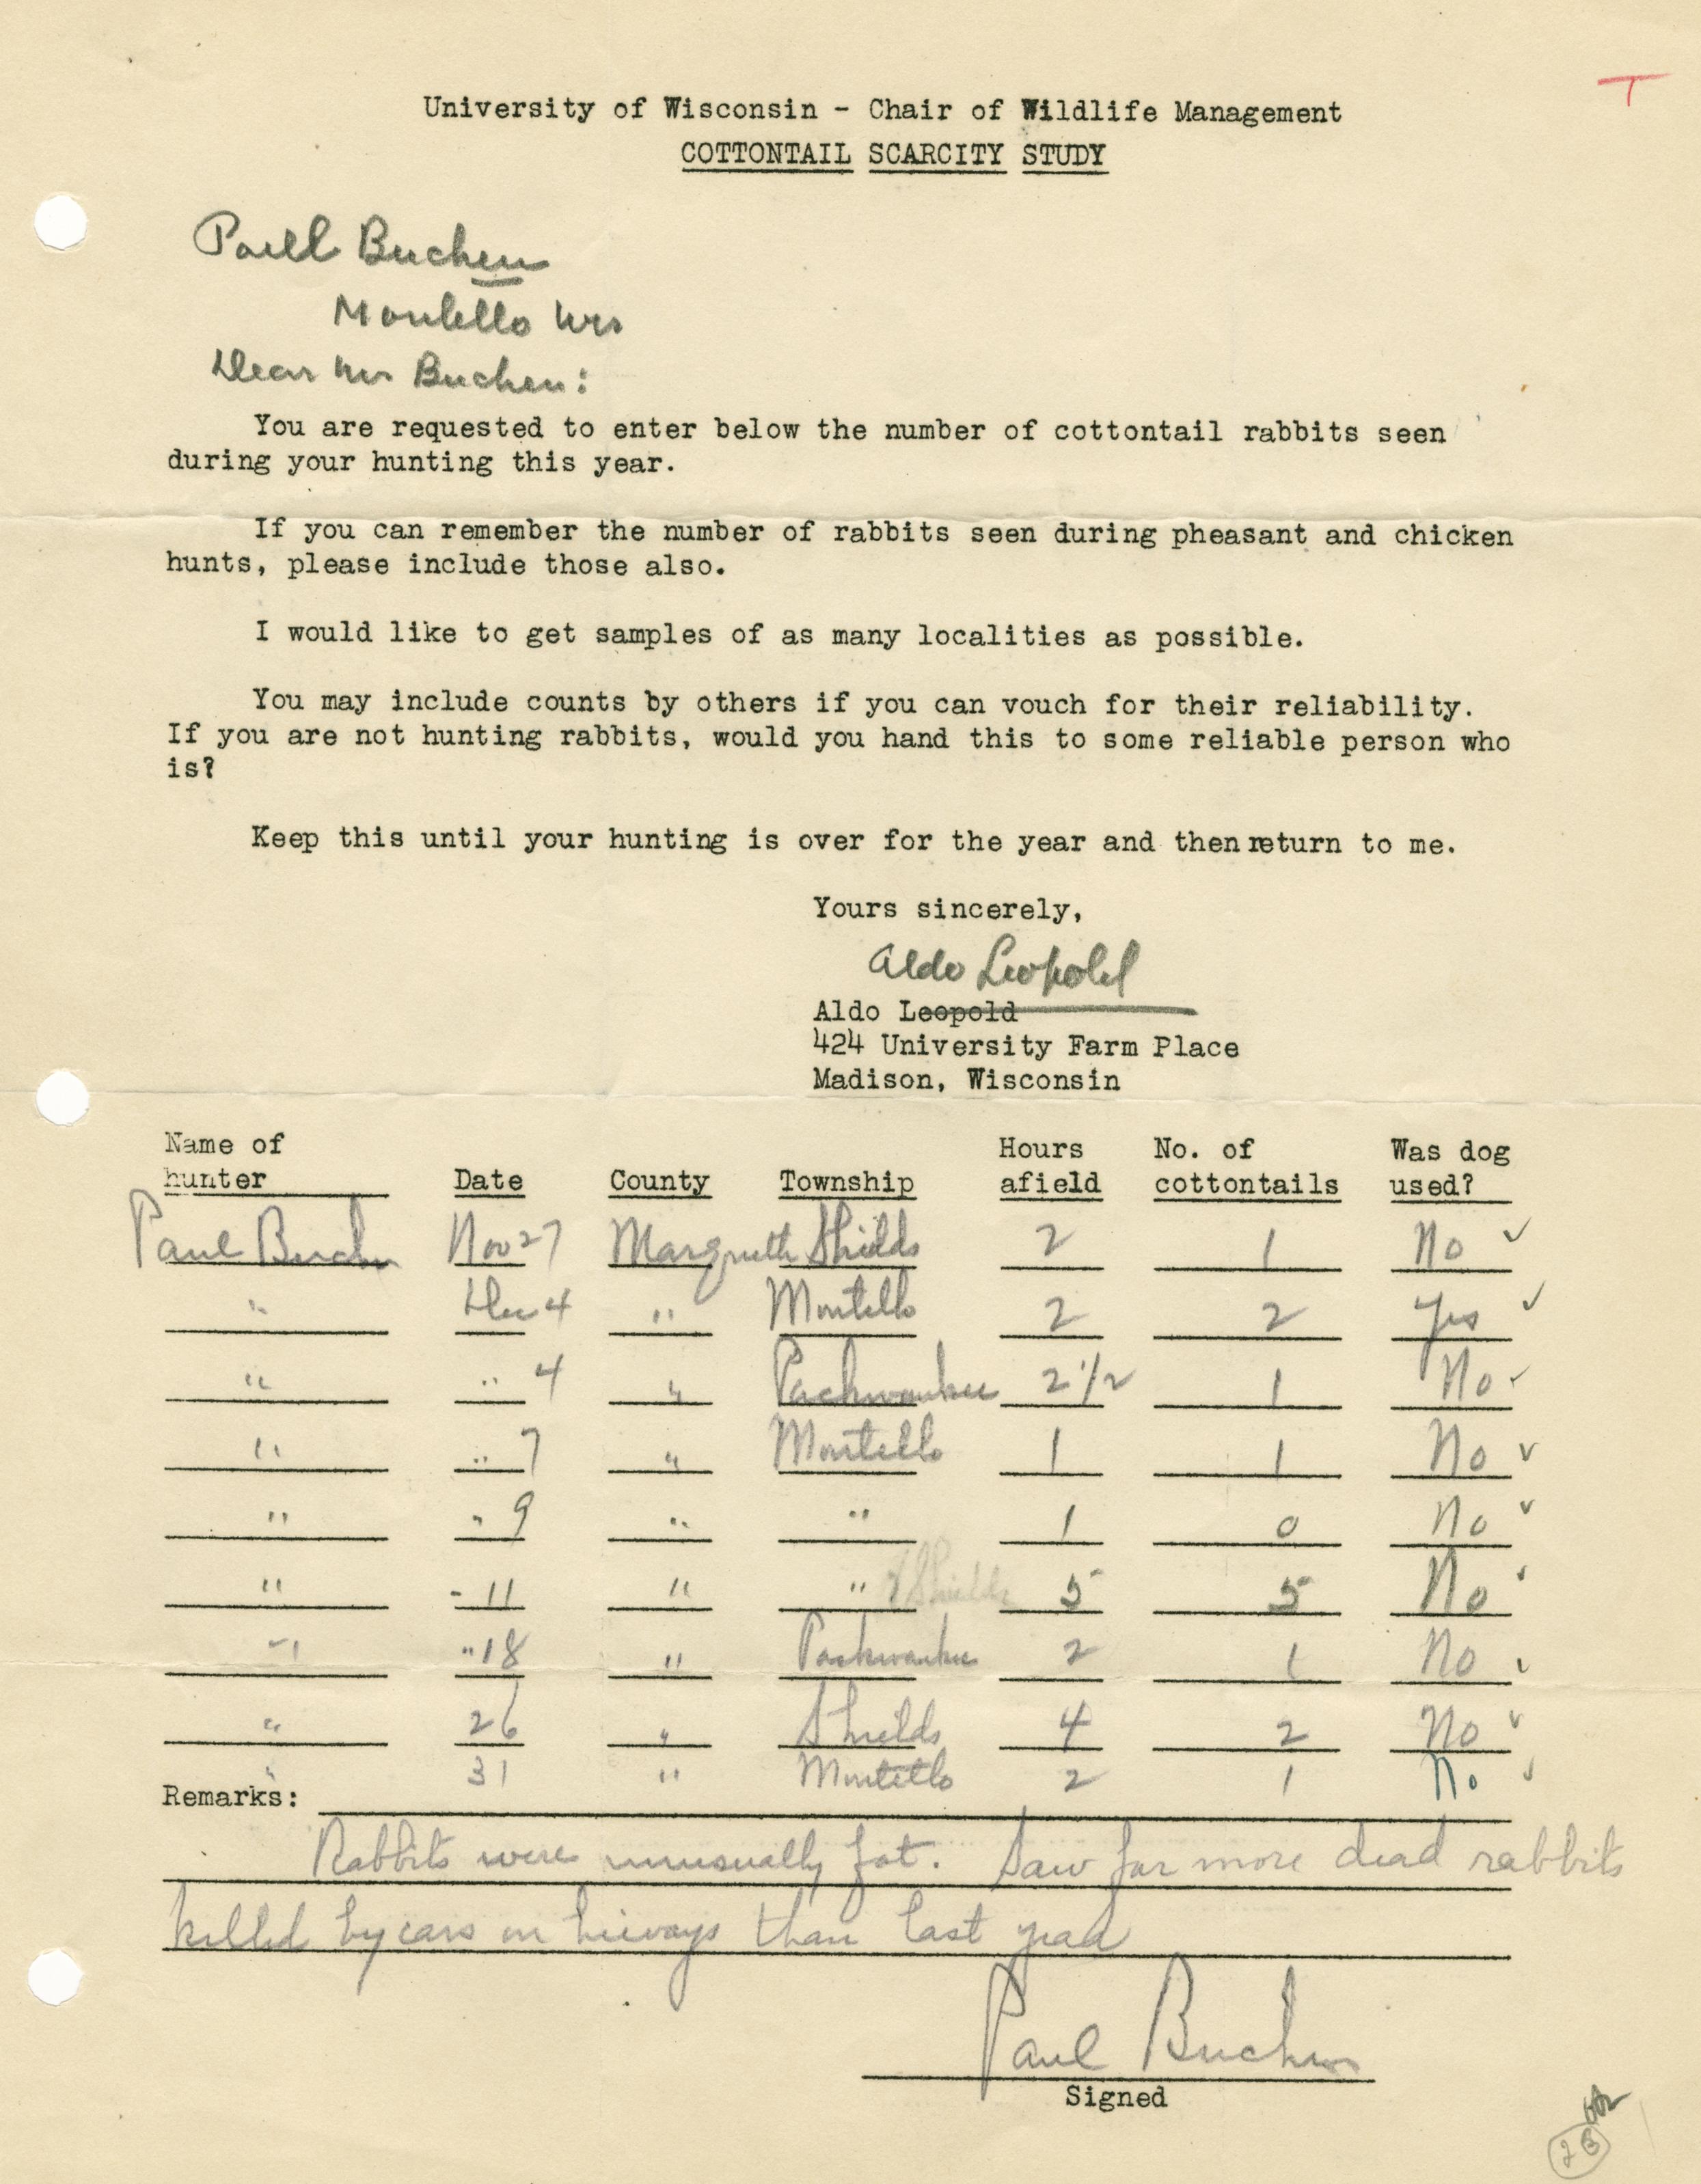 T
University of Wisconsin - Chair of Wildlife Management
COTTONTAIL SCARCITY STUDY
Paul Buchen
Montello Wis
Dear Mr Buchen:
You are requested to enter below the number of cottontail rabbits seen
during your hunting this year.
If you can remember the number of rabbits seen during pheasant and chicken
hunts, please include those also.
I would like to get samples of as many localities as possible.
You may include counts by others if you can vouch for their reliability.
If you are not hunting rabbits, would you hand this to some reliable person who
is?
Keep this until your hunting is over for the year and then return to me.
Yours sincerely,
Aldo Leopold
Aldo Leopold
424 University Farm Place
Madison, Wisconsin
Name of hunter Date County Township Hours afield No. of cottontails Was dog used?
Paul Buchen Nov 27 Marquette Shields 2 1 No ✓
" Dec 4 " Montello 2 2 Yes ✓
" " 4 " Packwaukee 2 1/2 1 No ✓
" " 7 " Montello 1 1 No ✓
" " 9 " " 1 0 No ✓
" " 11 " " & Shields 5 5 No ✓
" " 18 " Packwaukee 2 1 No ✓
" 26 " Shields 4 2 No ✓
" 31 " Montello 2 1 No ✓
Remarks:
Rabbits were unusually fat. Saw far more dead rabbits
killed by cars on hiways than last year
Paul Buchen
Signed